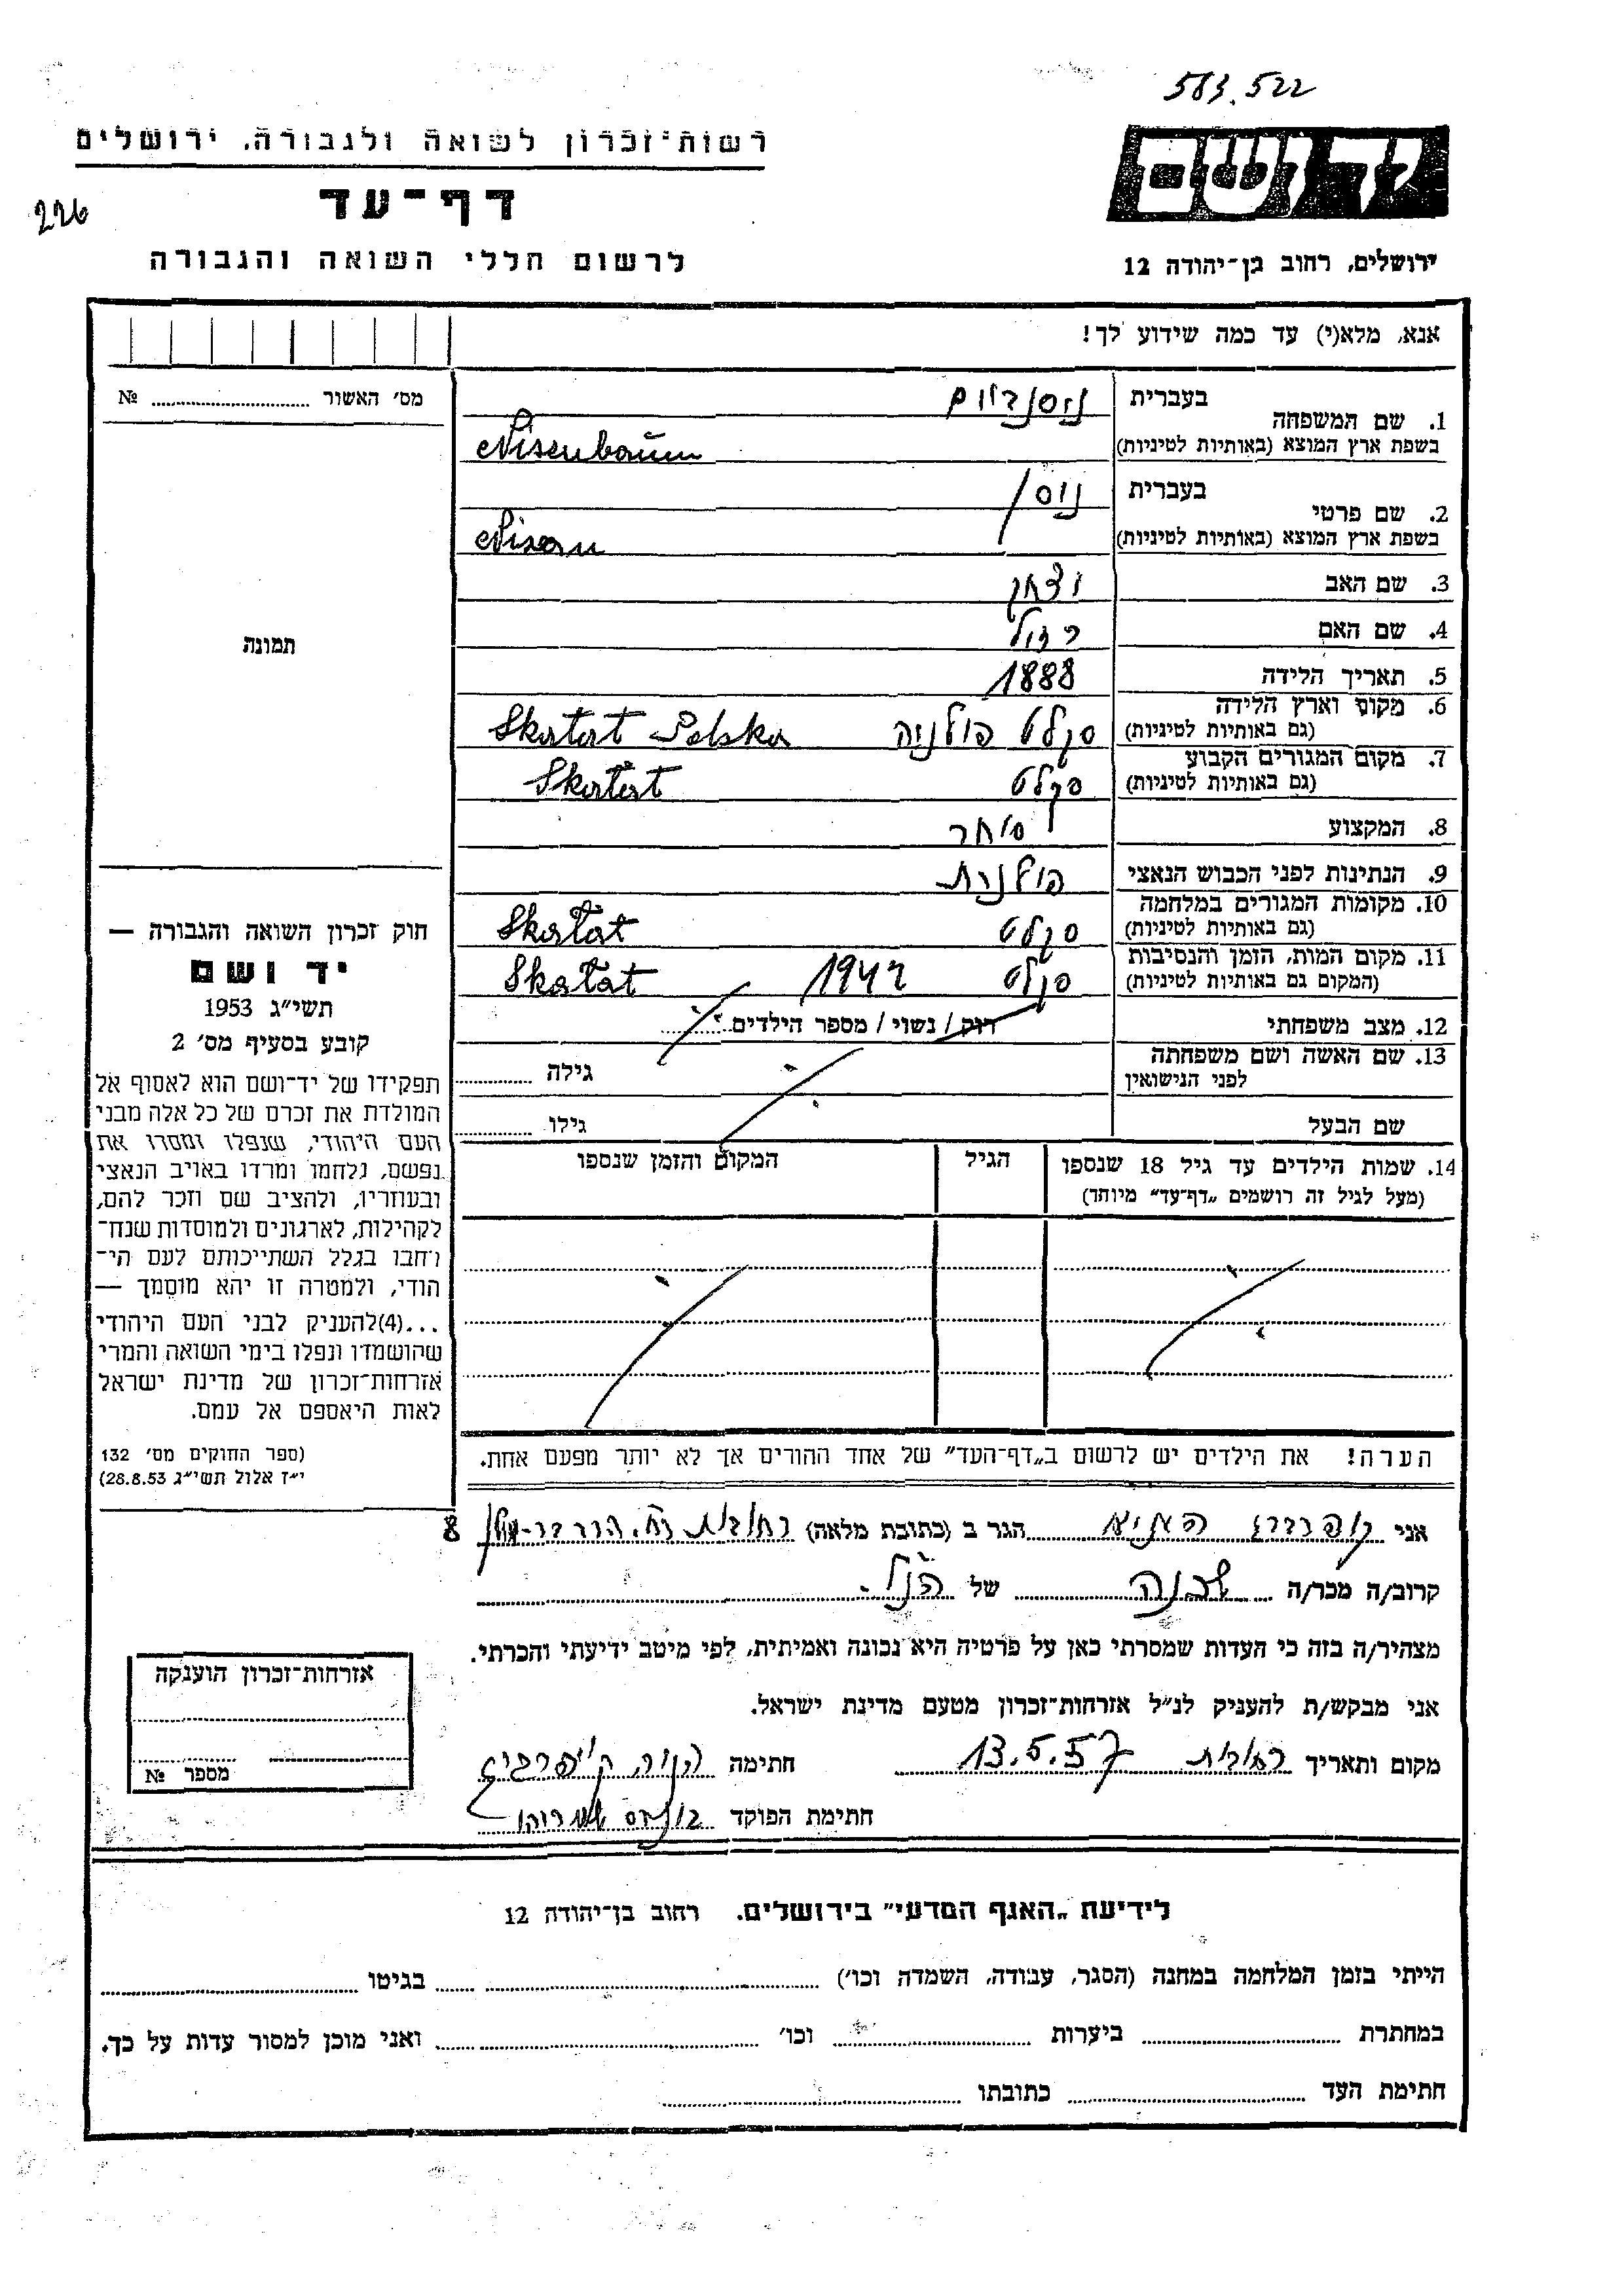 583.522
רשות־זכרון לשואה ולגבורה. ירושלים
יד ושם
226
דף־עד
לרשום חללי השואה והגבורה
ירושלים, רחוב בן־יהודה 12
אנא, מלא(י) עד כמה שידוע לך!
מס׳ האשור № ........
1. שם המשפחה
בעברית ניסנבוים
בשפת ארץ המוצא (באותיות לטיניות) Nisenbaum
2. שם פרטי
בעברית ניסן
בשפת ארץ המוצא (באותיות לטיניות) Nisan
3. שם האב יצחק
4. שם האם
5. תאריך הלידה 1888
6. מקום וארץ הלידה
(גם באותיות לטיניות) סקלט פולניה Skatat Polska
7. מקום המגורים הקבוע
(גם באותיות לטיניות) סקלט Skatat
8. המקצוע סוחר
9. הנתינות לפני הכבוש הנאצי פולנית
10. מקומות המגורים במלחמה
(גם באותיות לטיניות) סקלט Skatat
11. מקום המות, הזמן והנסיבות
(המקום גם באותיות לטיניות) סקלט 1942 Skatat
12. מצב משפחתי רוק / נשוי / מספר הילדים
13. שם האשה ושם משפחתה
לפני הנישואין גילה
שם הבעל גילו
14. שמות הילדים עד גיל 18 שנספו הגיל המקום והזמן שנספו
(מעל לגיל זה רושמים „דף־עד״ מיוחד)
הערה! את הילדים יש לרשום ב„דף־העד״ של אחד ההורים אך לא יותר מפעם אחת.
תמונה
חוק זכרון השואה והגבורה —
יד ושם
תשי״ג 1953
קובע בסעיף מס׳ 2
תפקידו של יד־ושם הוא לאסוף אל
המולדת את זכרם של כל אלה מבני
העם היהודי, שנפלו ומסרו את
נפשם, נלחמו ומרדו באויב הנאצי
ובעוזריו, ולהציב שם וזכר להם,
לקהילות, לארגונים ולמוסדות שנח־
רחבו בגלל השתייכותם לעם הי־
הודי, ולמטרה זו יהא מוסמך —
...(4)להעניק לבני העם היהודי
שהושמדו ונפלו בימי השואה והמרי
אזרחות־זכרון של מדינת ישראל
לאות היאספם אל עמם.
(ספר החוקים מס׳ 132
י״ז אלול תשי״ג 28.8.53)
אני קופרברג הגר ב (כתובת מלאה) רחובות רח. 8
קרוב/ה מכר/ה שכנה של הנ״ל
מצהיר/ה בזה כי העדות שמסרתי כאן על פרטיה היא נכונה ואמיתית, לפי מיטב ידיעתי והכרתי.
אני מבקש/ת להעניק לנ״ל אזרחות־זכרון מטעם מדינת ישראל.
מקום ותאריך רחובות 13.5.57 חתימה קופרברג
חתימת הפוקד
אזרחות־זכרון הוענקה
מספר №
לידיעת „האגף המדעי״ בירושלים. רחוב בן־יהודה 12
הייתי בזמן המלחמה במחנה (הסגר, עבודה, השמדה וכו׳) בגיטו
במחתרת ביערות וכו׳ ואני מוכן למסור עדות על כך.
חתימת העד כתובתו